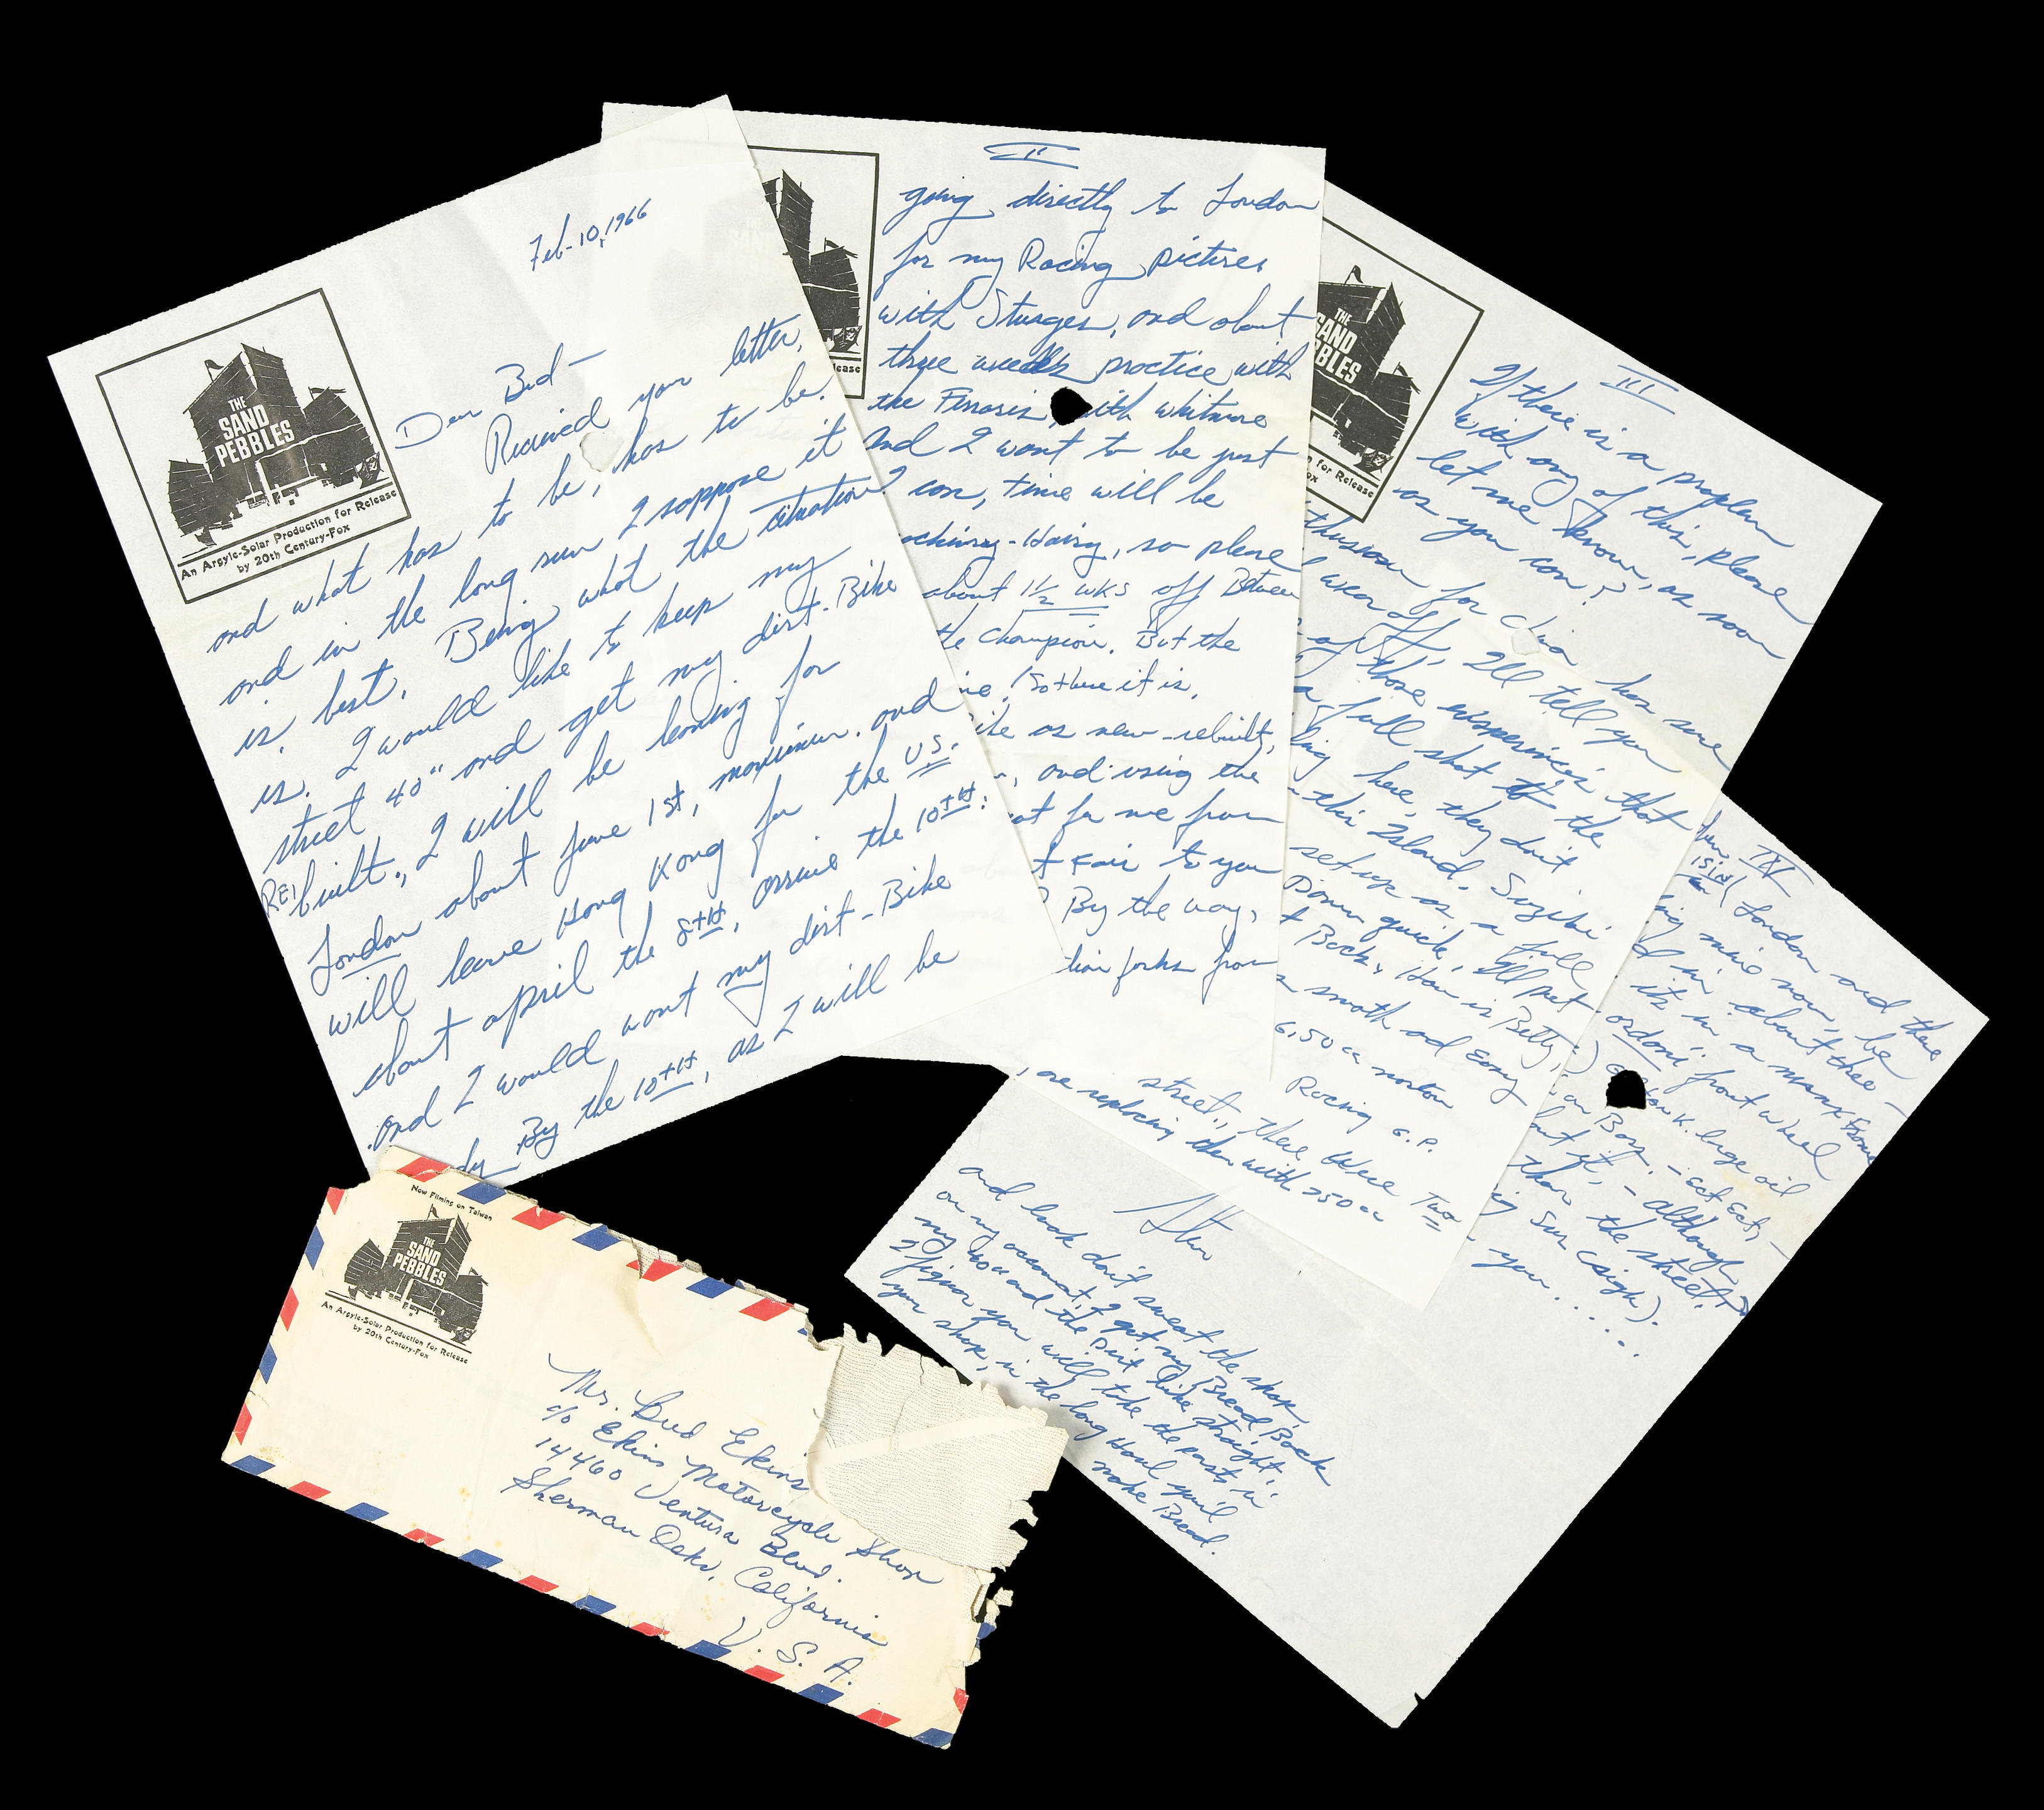 Feb-10, 1966
THE
SAND
PEBBLES
An Argyle-Solar Production for Release
by 20th Century-Fox
Dear Bud —
Recieved your letter,
and what has to be, has to be.
and in the long run I soppose it
is best. Being what the situation?
is. I would like to keep my
street 40" and get my dirt-Bike
RE! built., I will be leaving for
London about June 1st, maximum. and
will leave Hong Kong for the U.S.
about april the 8th, arrive the 10th:
and I would want my dirt-Bike
By the 10th, as I will be
II
SAND
ease
going directly to London
for my Racing pictures
with Sturges, and about
three weeks practice with
the Ferraris, with whitmore
And I want to be just
can, time will be
so please
about 1½ WKS off Between
the Champion. But the
So there it is,
as new-rebuilt,
and using the
for me from
Fair to you
? By the way,
forks from
III
THE
SAND
BBLES
n for Release
ox
If there is a problem
with any of this, please
let me know, as soon
as you can?
for china has sure
wear off, I'll tell you
of those experinces that
a full shot to the
here, they don't
this Island. Suziki
set up as a full
Down quick, I'll Bet
Back, How is Betty,
smooth and Easy
6,50 cc norton
Racing G.P.
street, there Were Two
, are replacing them with 250 cc
IV
London and there
mine now, be
in about three —
its in a
front wheel
large oil
Boys. – Ect, Ect, –
it, – although
than the street,
Sur (sigh).
you.....
Steve
and look don't sweat the shop,
on my account, I got my Bread Back
my 40" and the Dirt Bike straight,
I figure you will take the parts in
your shop, in the long Haul you'll
make Bread.
Now Filming on Taiwan
THE
SAND
PEBBLES
An Argyle-Solar Production for Release
by 20th Century-Fox
Mr. Bud Ekins
c/o Ekins Motorcycle Shop
14460 Ventura Blvd.
Sherman Oaks, California
U. S. A.